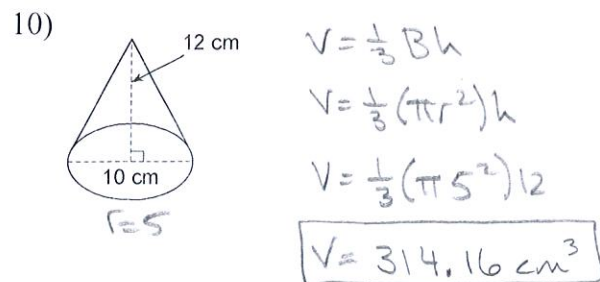 10)
12 cm
10 cm
r=5
V = 1/3 Bh
V = 1/3 (πr²)h
V = 1/3 (π5²)12
V = 314.16 cm³